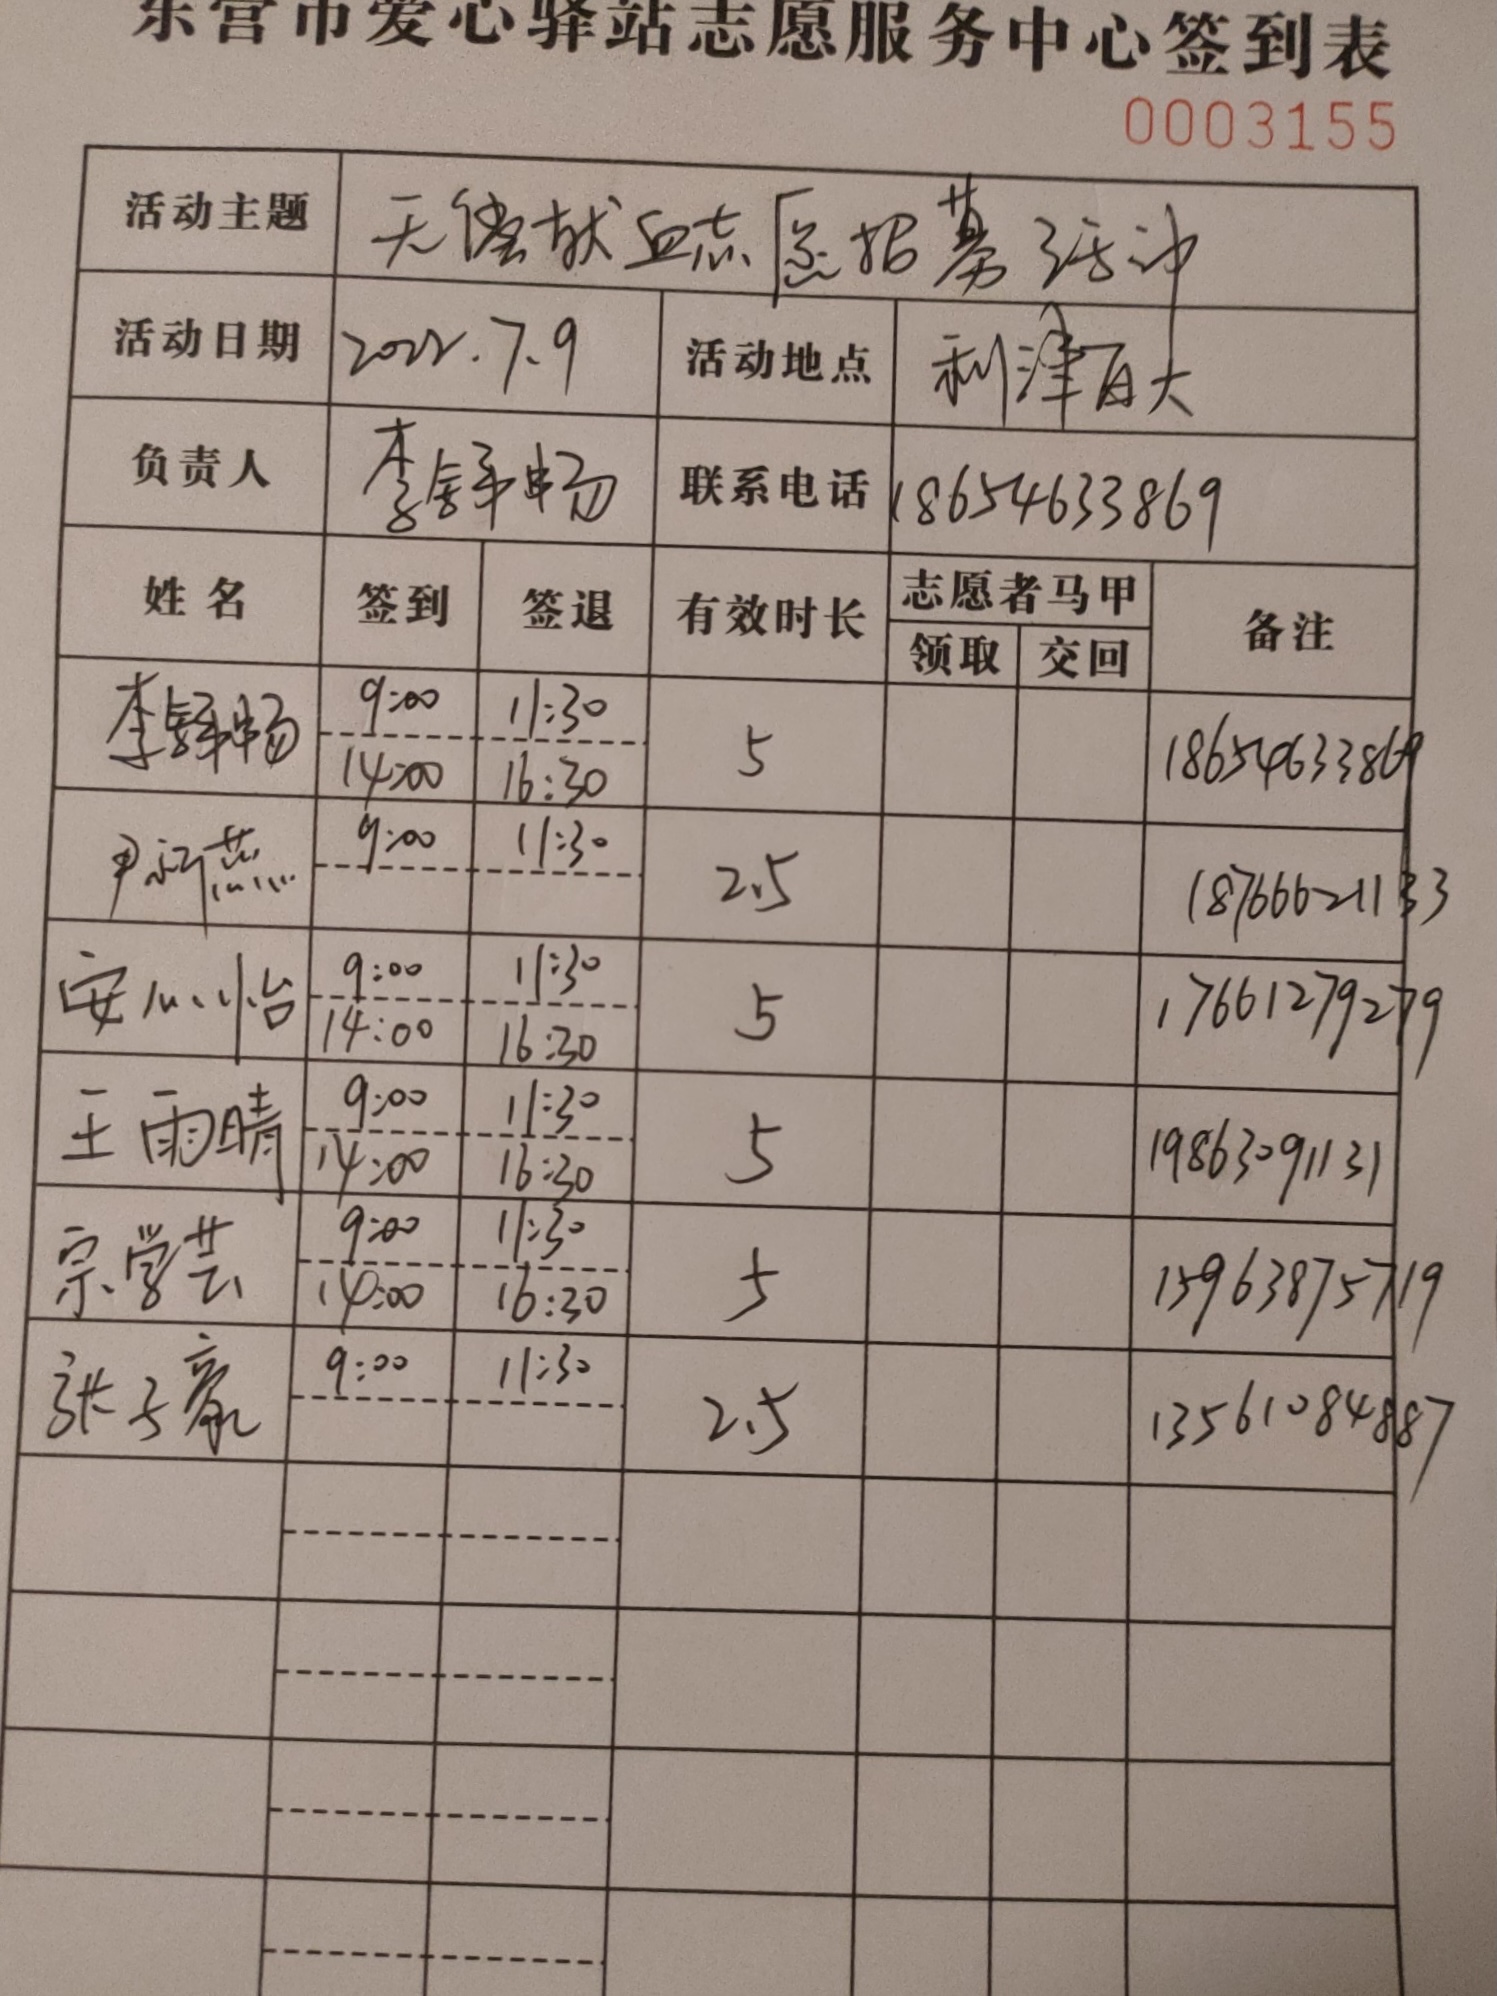 东营市爱心驿站志愿服务中心签到表
0003155
活动主题 无偿献血志愿招募活动
活动日期 2022.7.9 活动地点 利津百大
负责人 李舒畅 联系电话 18654633869
姓名 签到 签退 有效时长 志愿者马甲 备注
领取 交回
李舒畅 9:00 11:30 5 18654633869
14:00 16:30
9:00 11:30 2.5 18766621133
安心怡 9:00 11:30 5 17661279279
14:00 16:30
王雨晴 9:00 11:30 5 19863091131
14:00 16:30
宗学芸 9:00 11:30 5 15963875719
14:00 16:30
张子赢 9:00 11:30 2.5 13561084887